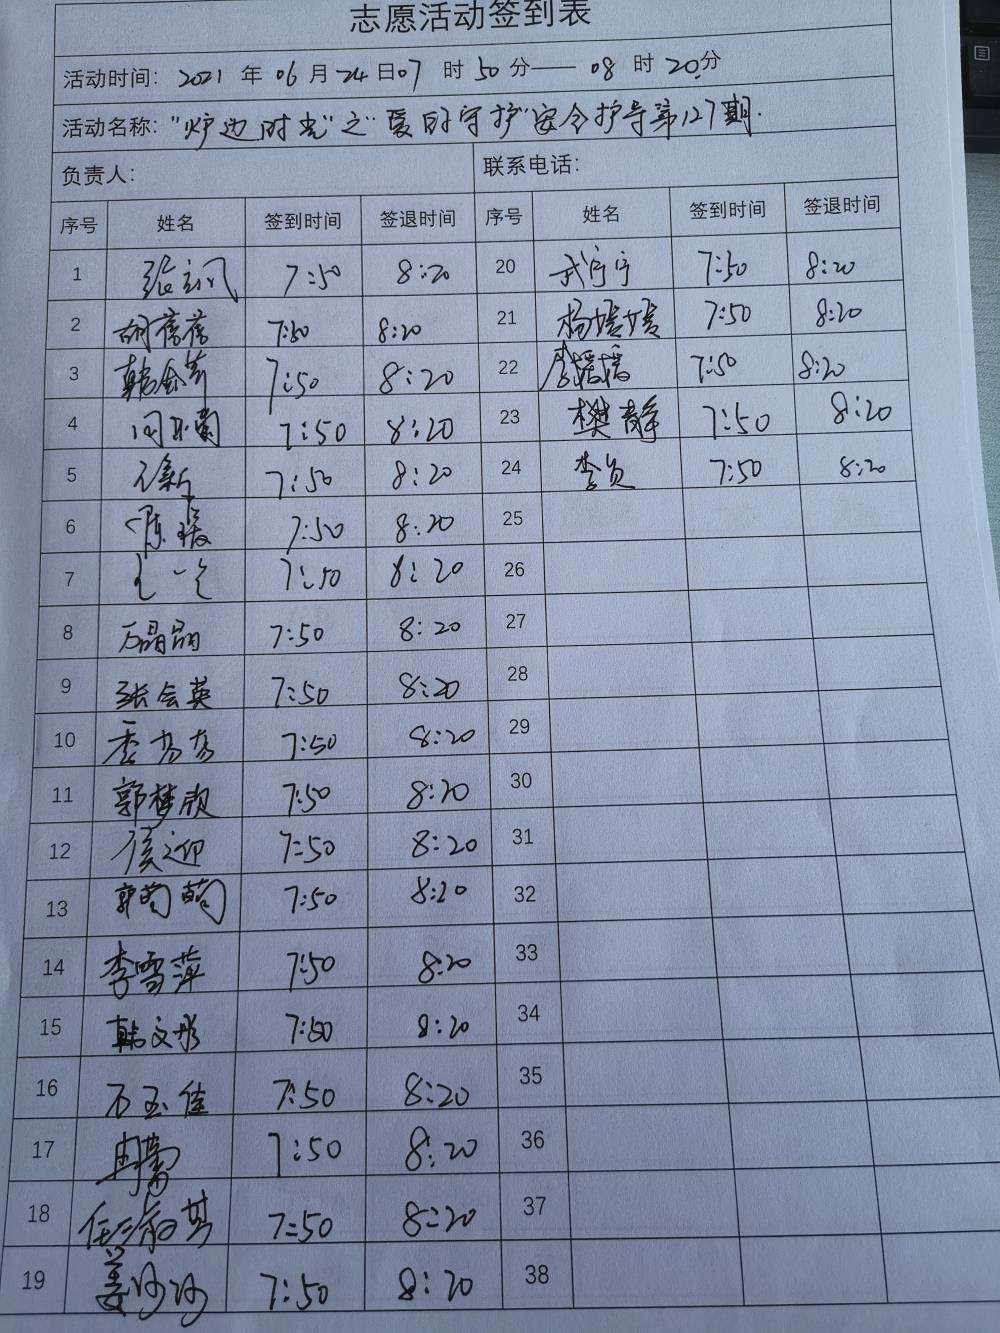 志愿活动签到表
活动时间: 2021 年 06 月 24 日 07 时 50 分—— 08 时 20 分
活动名称: "炉边时光"之"爱的守护"安全护导第127期.
负责人: 联系电话:
序号 姓名 签到时间 签退时间 序号 姓名 签到时间 签退时间
1 张 7:50 8:20 20 武宁宁 7:50 8:20
2 胡蓓蓓 7:50 8:20 21 杨媛媛 7:50 8:20
3 韩金 7:50 8:20 22 李瑶瑶 7:50 8:20
4 7:50 8:20 23 樊静 7:50 8:20
5 新 7:50 8:20 24 李贞 7:50 8:20
6 陈瑗 7:50 8:20 25
7 王一 7:50 8:20 26
8 万晶晶 7:50 8:20 27
9 张会英 7:50 8:20 28
10 7:50 8:20 29
11 郭梦欣 7:50 8:20 30
12 侯迎 7:50 8:20 31
13 郭萌萌 7:50 8:20 32
14 李雪萍 7:50 8:20 33
15 韩文彤 7:50 8:20 34
16 石玉佳 7:50 8:20 35
17 冉蕾 7:50 8:20 36
18 任 7:50 8:20 37
19 姜沙沙 7:50 8:20 38